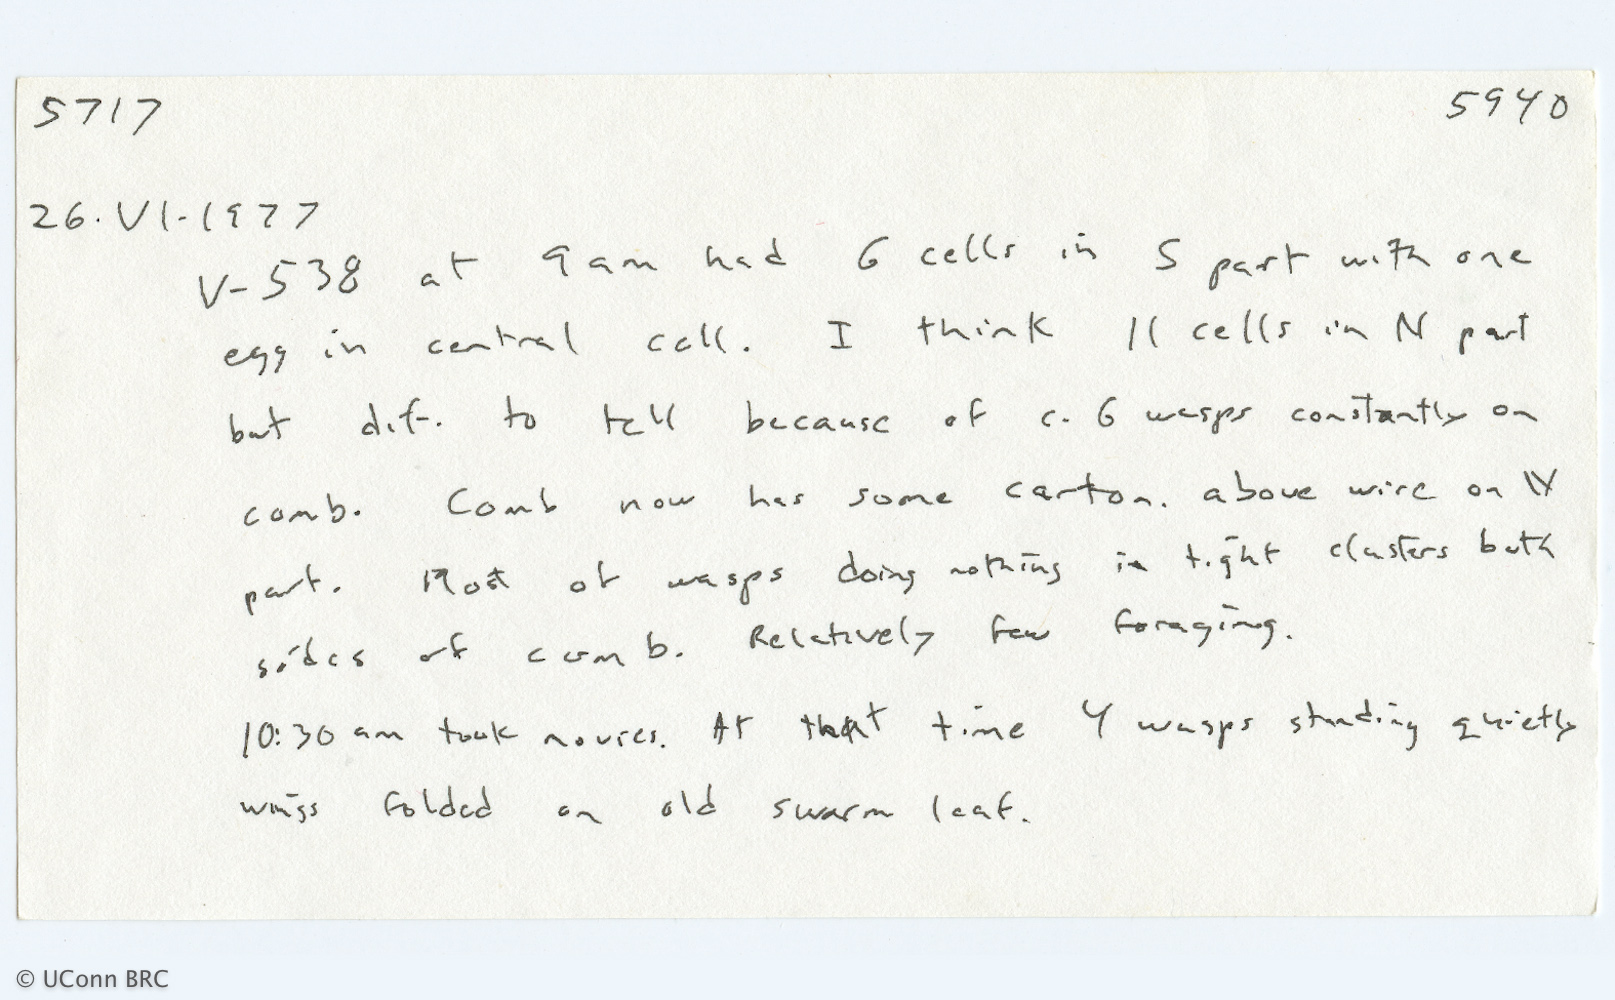 5717 5940
26.VI.1977
V-538 at 9 am had 6 cells in S part with one
egg in central cell. I think 11 cells in N part
but dif. to tell because of c. 6 wasps constantly on
comb. Comb now has some carton. above wire on N
part. Most of wasps doing nothing in tight clusters both
sides of comb. Relatively few foraging.
10:30 am took movies. At that time 4 wasps standing quietly
wings folded on old swarm leaf.
© UConn BRC